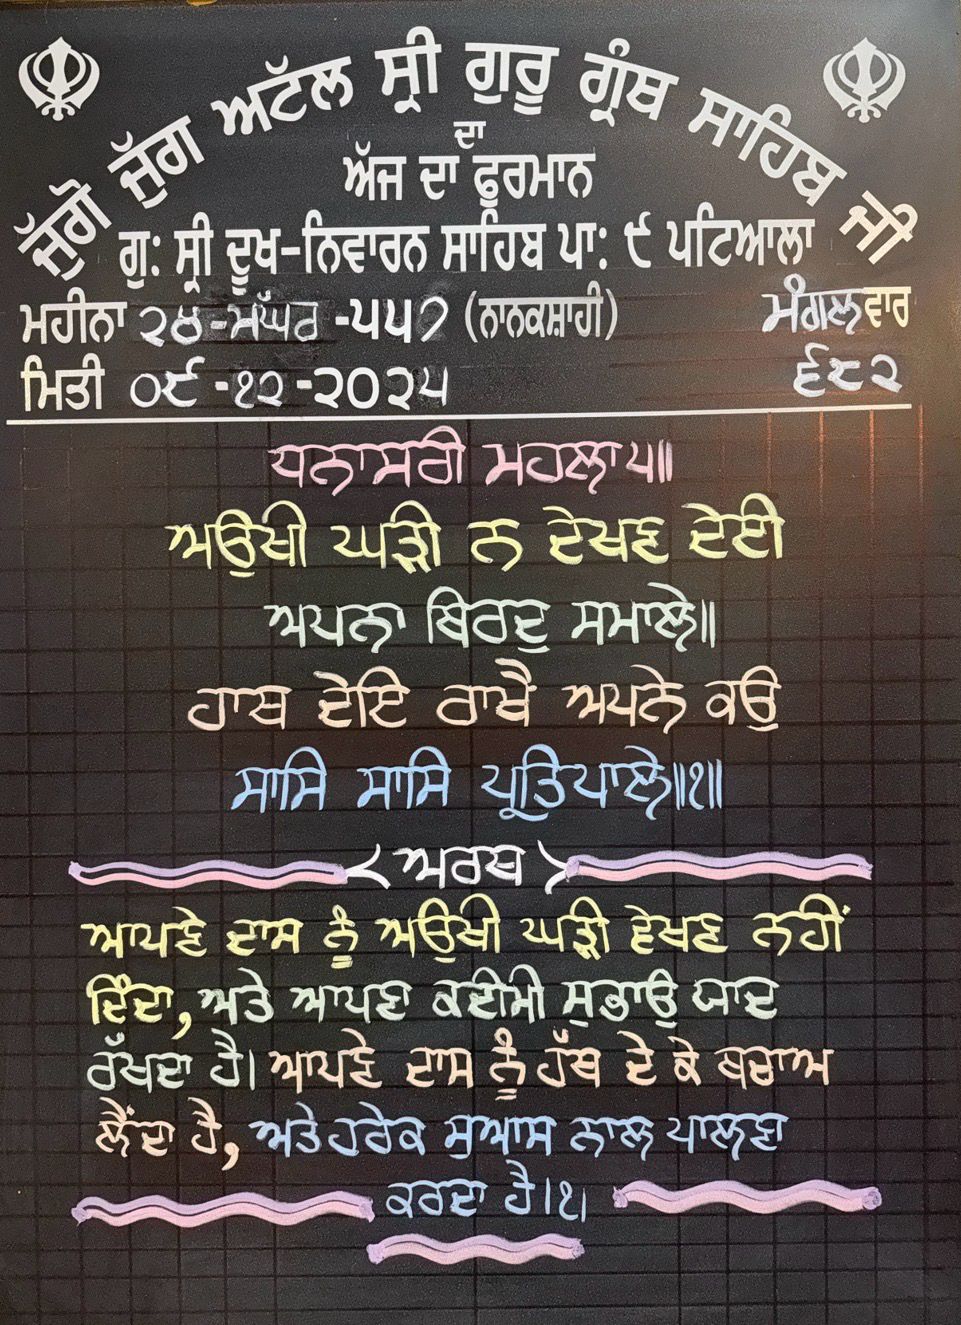 ਜੁੱਗੋ ਜੁੱਗ ਅਟੱਲ ਸ੍ਰੀ ਗੁਰੂ ਗ੍ਰੰਥ ਸਾਹਿਬ ਜੀ
ਦਾ
ਅੱਜ ਦਾ ਫੁਰਮਾਨ
ਗੁ: ਸ੍ਰੀ ਦੂਖ-ਨਿਵਾਰਨ ਸਾਹਿਬ ਪਾ: ੯ ਪਟਿਆਲਾ
ਮਹੀਨਾ ੨੪-ਮੱਘਰ -੫੫੭ (ਨਾਨਕਸ਼ਾਹੀ) ਮੰਗਲਵਾਰ
ਮਿਤੀ ੦੯-੧੨-੨੦੨੫ ੬੮੨
ਧਨਾਸਰੀ ਮਹਲਾ ੫॥
ਅਉਖੀ ਘੜੀ ਨ ਦੇਖਣ ਦੇਈ
ਅਪਨਾ ਬਿਰਦੁ ਸਮਾਲੇ॥
ਹਾਥ ਦੇਇ ਰਾਖੈ ਅਪਨੇ ਕਉ
ਸਾਸਿ ਸਾਸਿ ਪ੍ਰਤਿਪਾਲੇ॥੧॥
ਅਰਥ
ਆਪਣੇ ਦਾਸ ਨੂੰ ਅਉਖੀ ਘੜੀ ਵੇਖਣ ਨਹੀਂ
ਦਿੰਦਾ, ਅਤੇ ਆਪਣਾ ਕਦੀਮੀ ਸੁਭਾਉ ਯਾਦ
ਰੱਖਦਾ ਹੈ। ਆਪਣੇ ਦਾਸ ਨੂੰ ਹੱਥ ਦੇ ਕੇ ਬਚਾਅ
ਲੈਂਦਾ ਹੈ, ਅਤੇ ਹਰੇਕ ਸੁਆਸ ਨਾਲ ਪਾਲਣਾ
ਕਰਦਾ ਹੈ।੧।